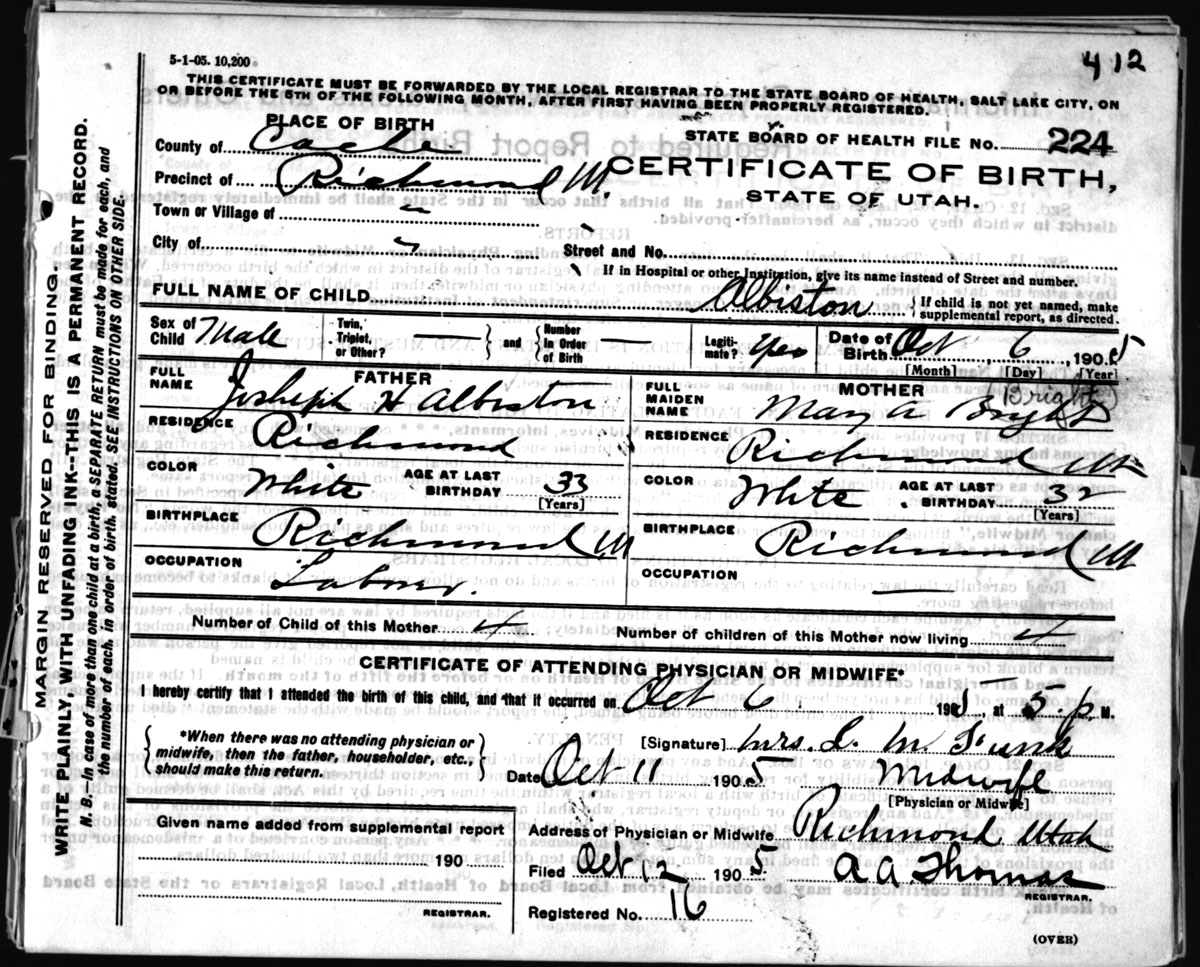 412
5-1-05. 10,200
THIS CERTIFICATE MUST BE FORWARDED BY THE LOCAL REGISTRAR TO THE STATE BOARD OF HEALTH, SALT LAKE CITY, ON
OR BEFORE THE 5TH OF THE FOLLOWING MONTH, AFTER FIRST HAVING BEEN PROPERLY REGISTERED.
PLACE OF BIRTH
STATE BOARD OF HEALTH FILE NO. 224
County of Cache
CERTIFICATE OF BIRTH,
Precinct of Richmond
STATE OF UTAH.
Town or Village of "
City of "
Street and No.
If in Hospital or other Institution, give its name instead of Street and number.
FULL NAME OF CHILD Albiston
{ If child is not yet named, make
supplemental report, as directed.
Sex of Child Male
Twin, Triplet, or Other? } and { Number in Order of Birth —
Legiti-mate? Yes
Date of Birth Oct 6, 1905
[Month] [Day] [Year]
FATHER
MOTHER (Bright)
FULL NAME Josheph H Albiston
FULL MAIDEN NAME Mary A Bright
RESIDENCE Richmond
RESIDENCE Richmond Ut
COLOR White AGE AT LAST BIRTHDAY 33 [Years]
COLOR White AGE AT LAST BIRTHDAY 32 [Years]
BIRTHPLACE Richmond Ut
BIRTHPLACE Richmond Ut
OCCUPATION Labour.
OCCUPATION —
Number of Child of this Mother 4
Number of children of this Mother now living 4
CERTIFICATE OF ATTENDING PHYSICIAN OR MIDWIFE*
I hereby certify that I attended the birth of this child, and that it occurred on Oct 6 1905, at 5 P. M.
{ *When there was no attending physician or
midwife, then the father, householder, etc.,
should make this return. }
[Signature] Mrs. I. M. Funk
Date Oct 11 1905 Midwife
[Physician or Midwife]
Given name added from supplemental report
190
REGISTRAR.
Address of Physician or Midwife Richmond Utah
Filed Oct 12 1905 A A Thomas
REGISTRAR.
Registered No. 16
(OVER)
MARGIN RESERVED FOR BINDING.
WRITE PLAINLY WITH UNFADING INK--THIS IS A PERMANENT RECORD.
N. B.—In case of more than one child at a birth, a SEPARATE RETURN must be made for each, and
the number of each, in order of birth, stated. SEE INSTRUCTIONS ON OTHER SIDE.